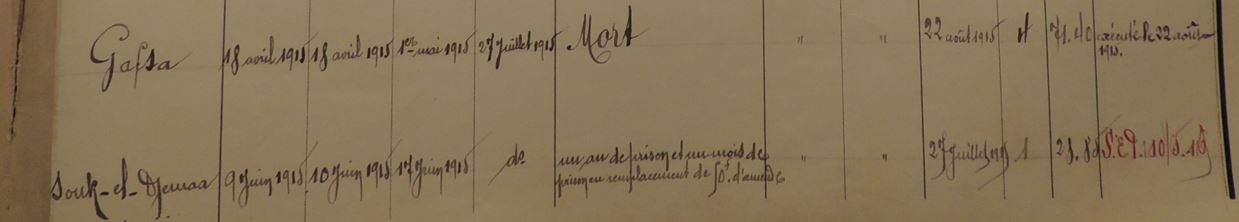 Gafsa 18 avril 1915 18 avril 1915 1er mai 1915 27 Juillet 1915 Mort " " 22 août 1915 71.40 exécuté le 22 août
1915.
Souk-el-Djemaa 9 Juin 1915 10 Juin 1915 17 Juin 1915 do un an de prison et un mois de " " 27 Juillet 1915 1
prison en remplacement de 50f. d'amende